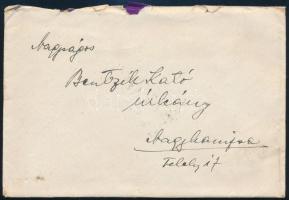 Nagyságos
Bentzik Kató
úrleány
Nagykanizsa
Teleky 17